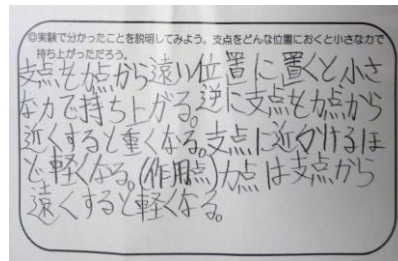 ◎実験で分かったことを説明してみよう。支点をどんな位置におくと小さな力で
持ち上がっただろう。
支点を力点から遠い位置に置くと小さ
な力で持ち上がる。逆に支点を力点から
近くすると重くなる。支点に近づけるほ
ど軽くなる。(作用点)力点は支点から
遠くすると軽くなる。